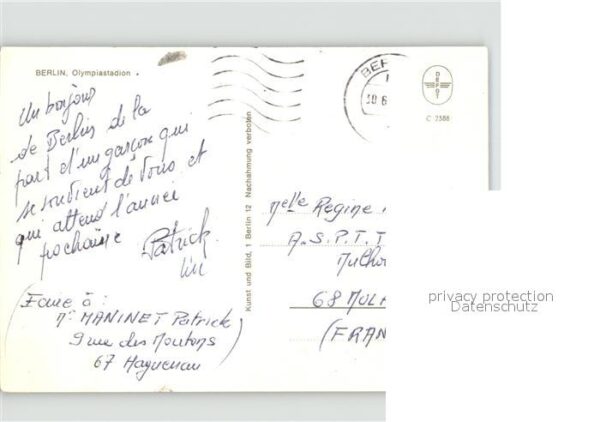 BERLIN, Olympiastadion
Un bonjour
de Berlin de la
part d'un garçon qui
se souvient de vous et
qui attend l'année
prochaine Patrick
(Ecrire à :
Mr MANINET Patrick
9 rue des Moutons
67 Haguenau)
Kunst und Bild, 1 Berlin 12 Nachahmung verboten
BER
DEFOT
C 7388
Melle Regine
A.S.P.T.T
Mulho
68 MULH
(FRAN
privacy protection
Datenschutz